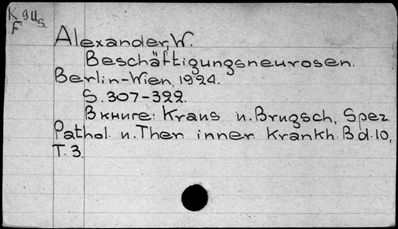 K 94s
F
Alexander, W.
Beschäftigungsneurosen.
Berlin-Wien, 1924.
S. 307-322.
В книге: Kraus u. Brugsch, Spez
Pathol. u. Ther inner Krankh. Bd. 10,
T. 3.